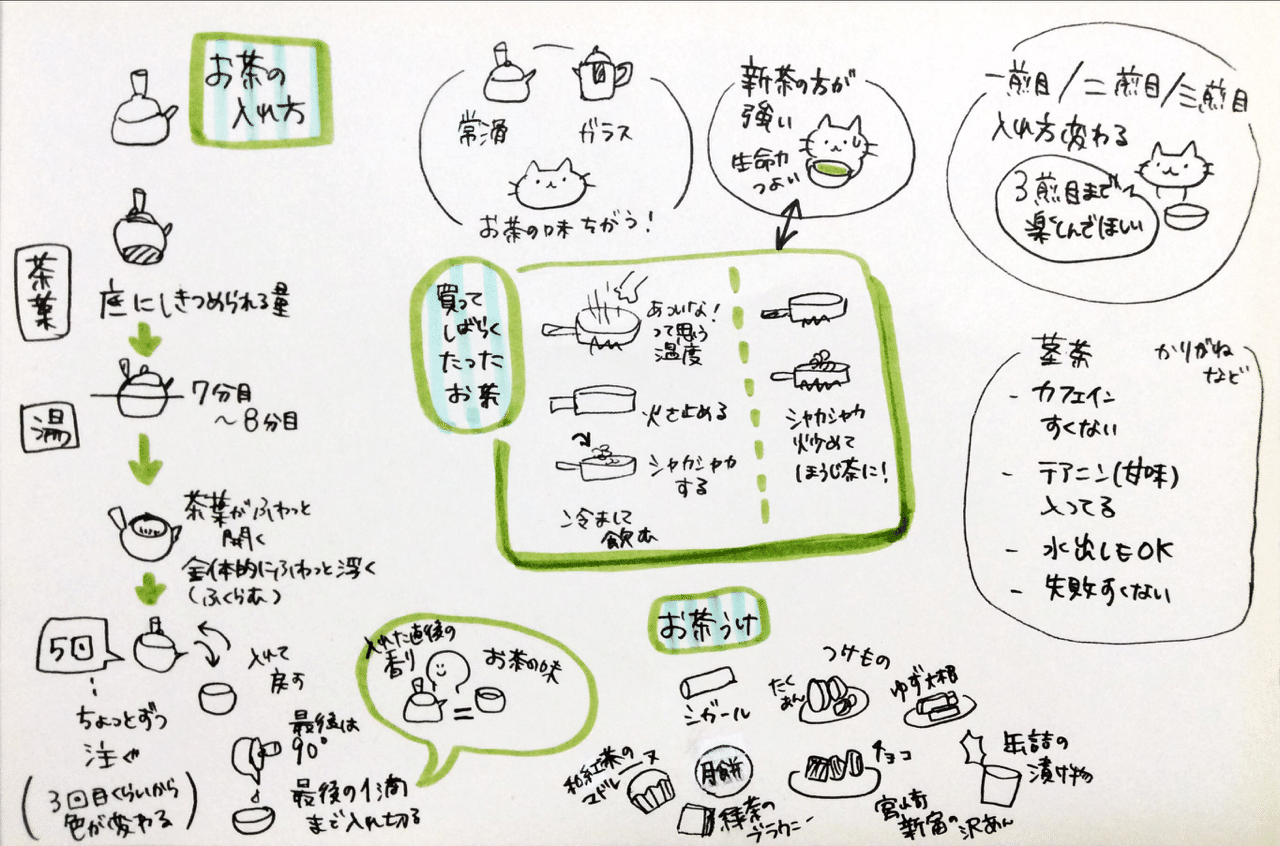 お茶の
入れ方
茶葉
底にしきつめられる量
湯
7分目
〜8分目
茶葉がふわっと
開く
全体的にふわっと浮く
(ふくらむ)
5回
ちょっとずつ
注ぐ
(3回目くらいから
色が変わる)
入れて
戻す
最後は
90°
最後の1滴
まで入れ切る
入れた直後の
香り
=
お茶の味
常滑
ガラス
お茶の味ちがう!
新茶の方が
強い
生命力
つよい
買って
しばらく
たった
お茶
あついな!
って思う
温度
火を止める
シャカシャカ
する
冷まして
飲む
シャカシャカ
炒めて
ほうじ茶に!
一煎目/二煎目/三煎目
入れ方変わる
3煎目まで
楽しんでほしい
茎茶
かりがね
など
- カフェイン
すくない
- テアニン(甘味)
入ってる
- 水出しもOK
- 失敗すくない
お茶うけ
シガール
つけもの
たく
あん
ゆず大根
和紅茶の
マドレーヌ
月餅
緑茶の
ブラウニー
チョコ
缶詰の
漬け物
宮崎
新富の沢あん